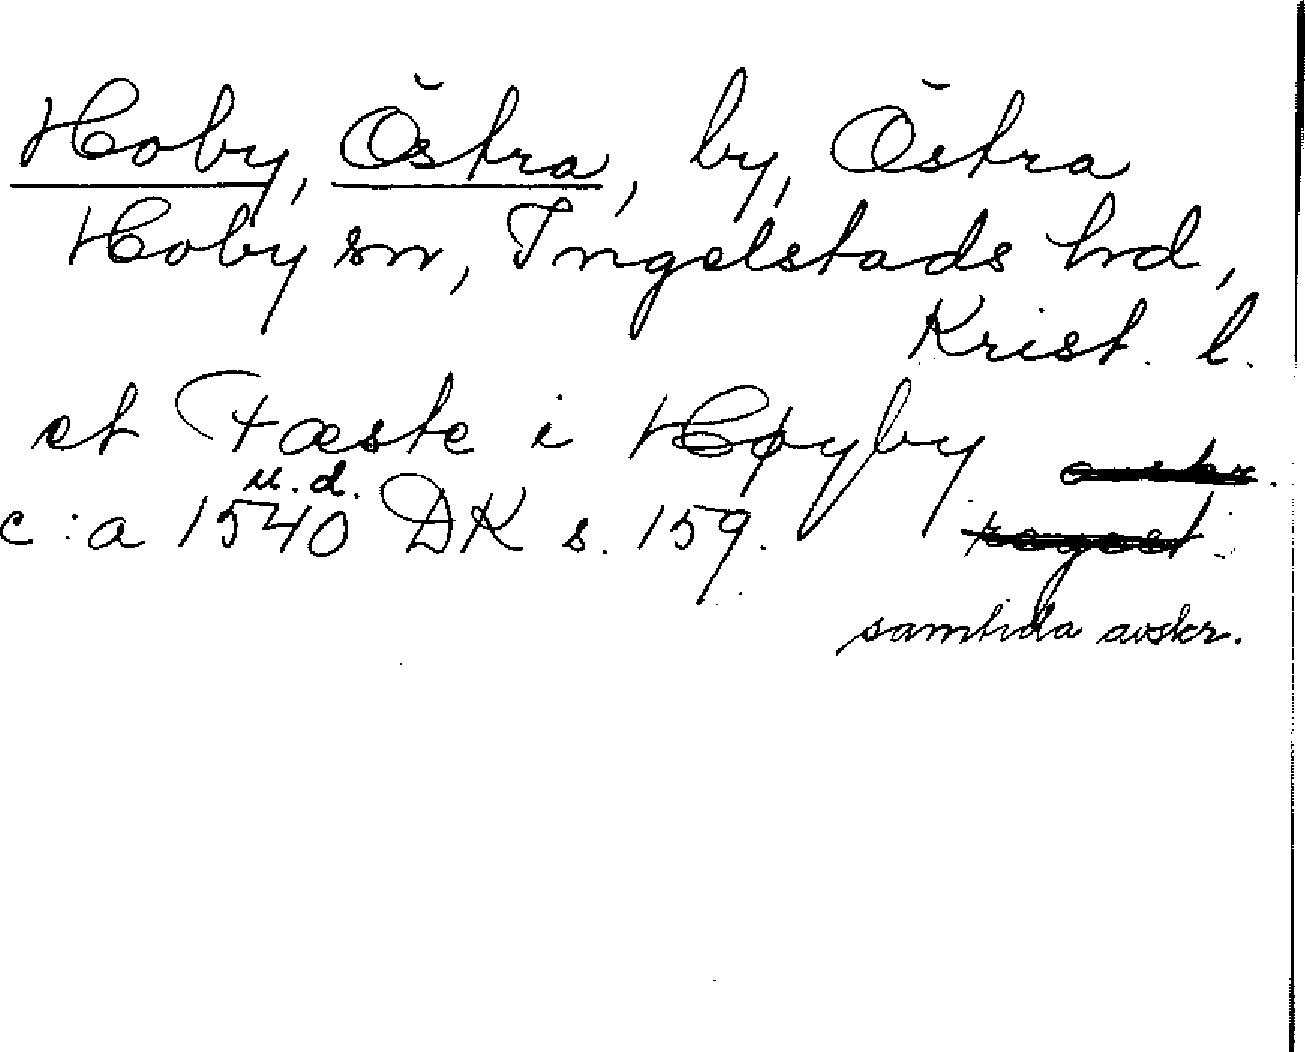 Hoby, Östra, by, Östra
Hoby sn, Ingelstads hd,
Krist. l.
et Fæste i Høyby avskr.
u.d.
c:a 1540 DK s. 159. regest.
samtida avskr.